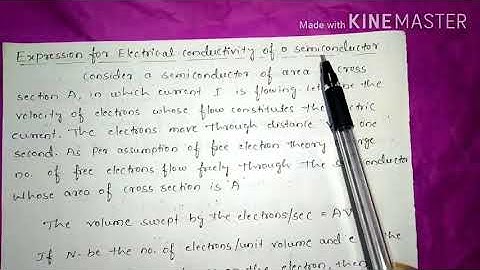 Made with KINEMASTER
Expression for Electrical conductivity of a semiconductor
Consider a semiconductor of area cross
section A, in which current I is flowing the
velocity of electrons whose flow constitutes the
current. The electrons move through distance one
second. As per assumption of free electron theory
no. of free electrons flow freely through the
whose area of cross section is A
The volume swept by the electrons/sec = AV
If N- be the no. of electrons/unit volume and e the
the electron, then